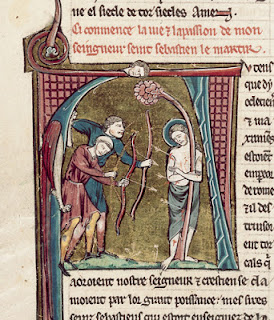 ne el siecle de tor siecles Amen
Ci commence la uie ⁊ la passion de mon
seingneur seint sebastien le martir
V tens
que dy
ocletien
⁊ ma
ximiens
estoient
emperor
de rome
⁊ il des
truisoi
ent tor
cals q̃
aoroient nostre seigneur ⁊ crestien se cla
moient par lor grant poissance / mes sires
seinz sebastiens qui estoit enseignier de la